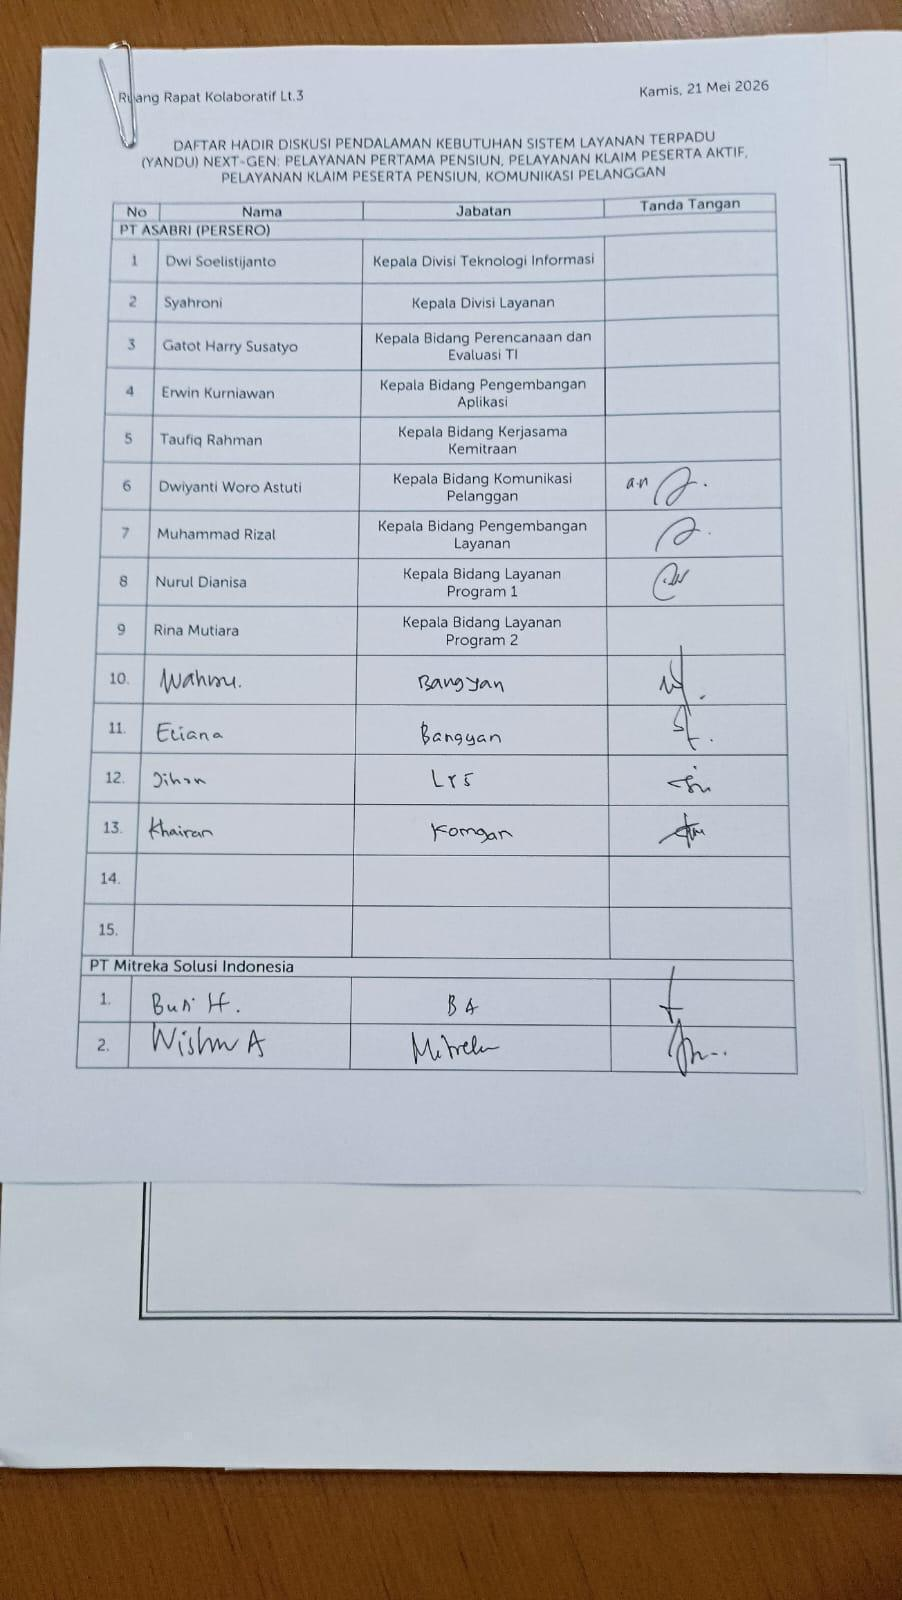 Ruang Rapat Kolaboratif Lt.3
Kamis, 21 Mei 2026
DAFTAR HADIR DISKUSI PENDALAMAN KEBUTUHAN SISTEM LAYANAN TERPADU
(YANDU) NEXT-GEN: PELAYANAN PERTAMA PENSIUN, PELAYANAN KLAIM PESERTA AKTIF,
PELAYANAN KLAIM PESERTA PENSIUN, KOMUNIKASI PELANGGAN
No Nama Jabatan Tanda Tangan
PT ASABRI (PERSERO)
1 Dwi Soelistijanto Kepala Divisi Teknologi Informasi
2 Syahroni Kepala Divisi Layanan
3 Gatot Harry Susatyo Kepala Bidang Perencanaan dan
Evaluasi TI
4 Erwin Kurniawan Kepala Bidang Pengembangan
Aplikasi
5 Taufiq Rahman Kepala Bidang Kerjasama
Kemitraan
6 Dwiyanti Woro Astuti Kepala Bidang Komunikasi
Pelanggan a.n
7 Muhammad Rizal Kepala Bidang Pengembangan
Layanan
8 Nurul Dianisa Kepala Bidang Layanan
Program 1
9 Rina Mutiara Kepala Bidang Layanan
Program 2
10. Bangyan
11. Eliana Bangyan
12. Jihan
13. Khairan Komgan
14.
15.
PT Mitreka Solusi Indonesia
1. H. BA
2. A Mitreka